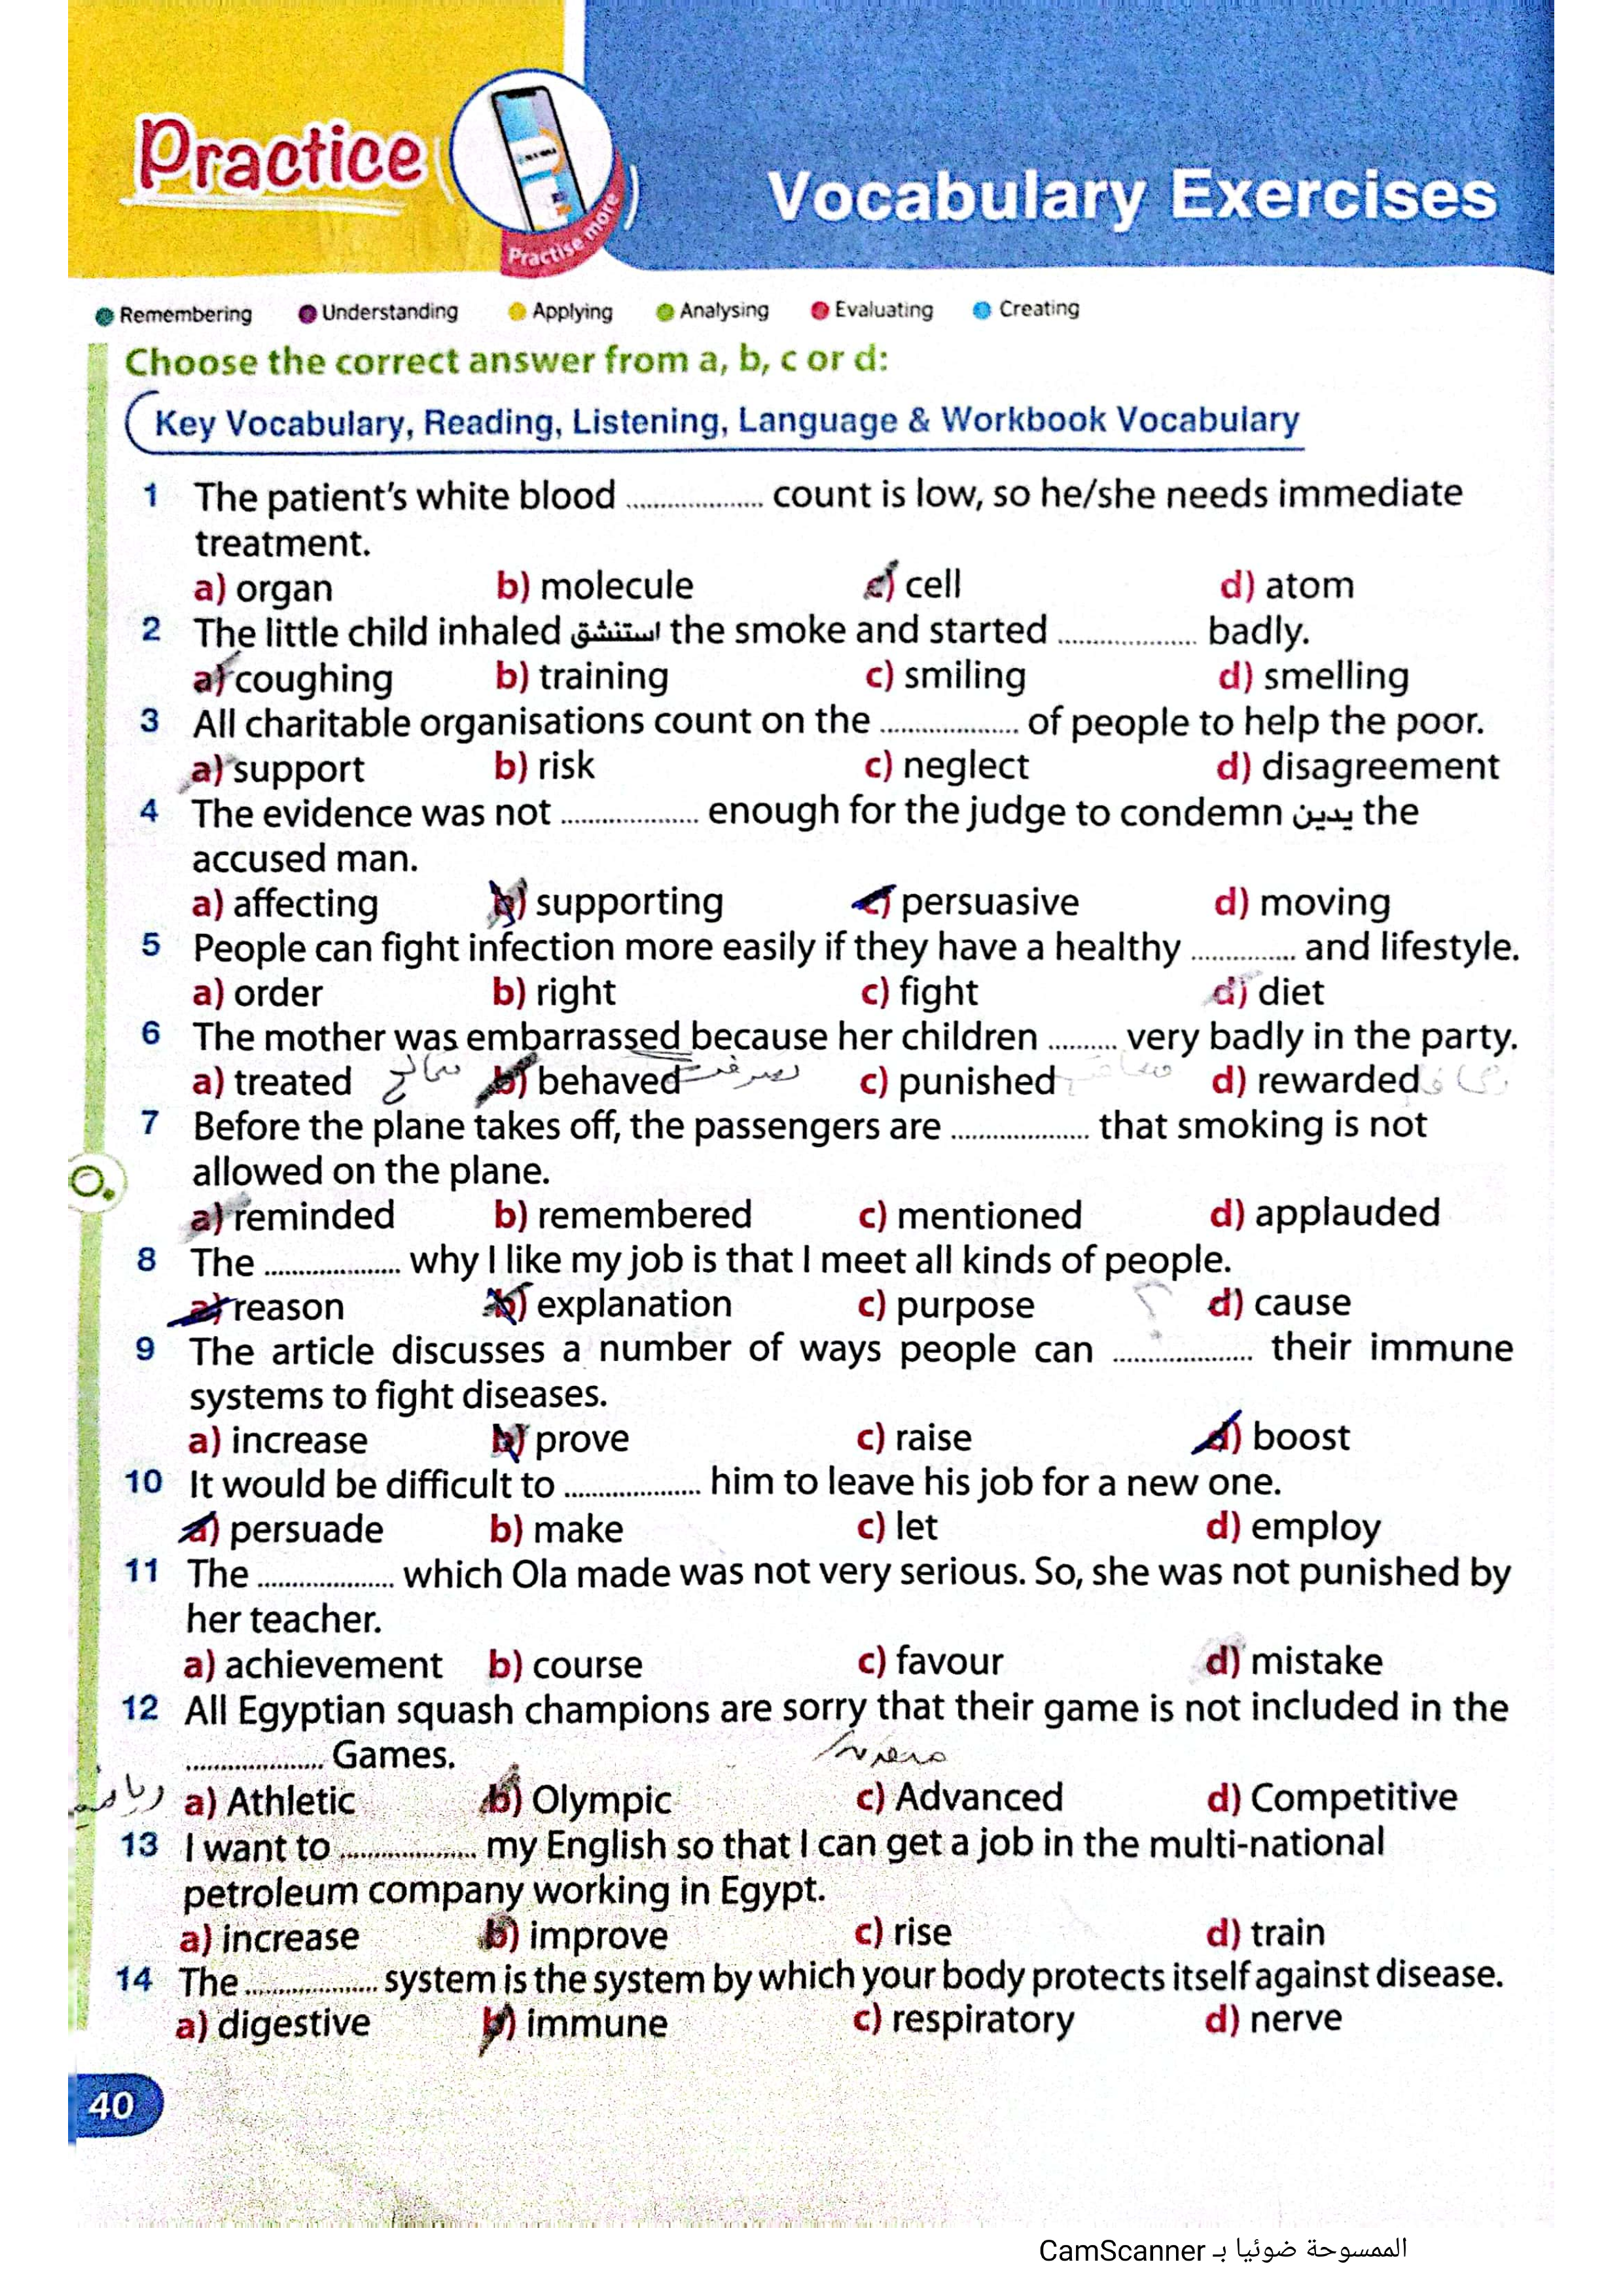 Practice
Practise more
Vocabulary Exercises
Remembering Understanding Applying Analysing Evaluating Creating
Choose the correct answer from a, b, c or d:
Key Vocabulary, Reading, Listening, Language & Workbook Vocabulary
1 The patient's white blood .................... count is low, so he/she needs immediate
treatment.
a) organ b) molecule c) cell d) atom
2 The little child inhaled استنشق the smoke and started .................... badly.
a) coughing b) training c) smiling d) smelling
3 All charitable organisations count on the .................... of people to help the poor.
a) support b) risk c) neglect d) disagreement
4 The evidence was not .................... enough for the judge to condemn يدين the
accused man.
a) affecting b) supporting c) persuasive d) moving
5 People can fight infection more easily if they have a healthy ............... and lifestyle.
a) order b) right c) fight d) diet
6 The mother was embarrassed because her children .......... very badly in the party.
a) treated b) behaved c) punished d) rewarded
7 Before the plane takes off, the passengers are .................... that smoking is not
allowed on the plane.
a) reminded b) remembered c) mentioned d) applauded
8 The .................... why I like my job is that I meet all kinds of people.
a) reason b) explanation c) purpose ؟ d) cause
9 The article discusses a number of ways people can .................... their immune
systems to fight diseases.
a) increase b) prove c) raise d) boost
10 It would be difficult to .................... him to leave his job for a new one.
a) persuade b) make c) let d) employ
11 The .................... which Ola made was not very serious. So, she was not punished by
her teacher.
a) achievement b) course c) favour d) mistake
12 All Egyptian squash champions are sorry that their game is not included in the
.................... Games.
a) Athletic b) Olympic c) Advanced d) Competitive
13 I want to .................... my English so that I can get a job in the multi-national
petroleum company working in Egypt.
a) increase b) improve c) rise d) train
14 The .................... system is the system by which your body protects itself against disease.
a) digestive b) immune c) respiratory d) nerve
40
الممسوحة ضوئيا بـ CamScanner